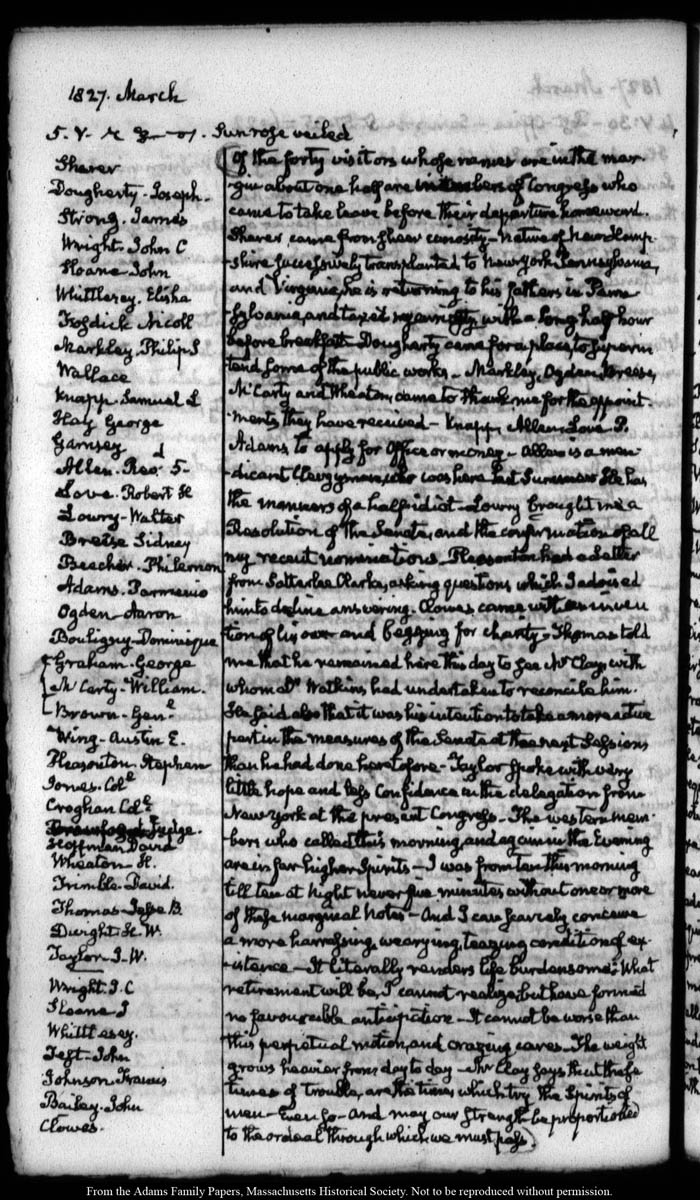 1827. March
5. V. Sun rose veiled
Sharer
Dougherty. Joseph.
Strong. James
Wright. John C
Sloane John
Whittlesey. Elisha
Fosdick Nicoll
Markley. Philip S
Wallace
Knapp. Samuel L
Hay George
Garnsey
Allen. Rev.d 5-
Love. Robert H
Lowry-Walter
Breese Sidney
Beecher. Philemon
Adams. Parmenio
Ogden-Aaron
Bouligny-Dominique
Graham-George
McCarty-William.
Brown-Genl
Wing-Austin E.
Pleasonton. Stephen
Jones. Coll
Croghan Coll
Judge.
Hoffman David
Wheaton-H.
Trimble. David.
Thomas-Jesse B.
Dwight-H. W.
Taylor-J. W.
Wright. J. C
Sloane J
Whittlesey.
Test-John
Johnson Francis
Bailey. John
Clowes.
(Of the forty visitors whose names are in the mar-
-gin about one half are members of Congress who
came to take leave before their departure homeward.
Sharer came from sheer curiosity-Native of New Hamp-
-shire successively transplanted to New York Pennsylvania,
and Virginia, he is returning to his fathers in Penn-
-sylvania, and taxed my with a long half hour
before breakfast-Dougherty came for a place, to superin-
tend some of the public works-Markley, Ogden, Breese,
McCarty and Wheaton, came to thank me for the appoint-
-ments they have received-Knapp, Allen, Love P.
Adams to apply for Office or money-Allen is a men-
-dicant Clergyman, who was here last Summer He has
the manners of a half idiot-Lowry brought me a
Resolution of the Senate, and the confirmation of all
my recent nominations. Pleasonton had a Letter
from Satterlee Clarke, asking questions which I advised
him to decline answering. Clowes came with an inven-
tion of his own and begging for charity-Thomas told
me that he remained here this day to see Mr Clay, with
whom Dr Watkins had undertaken to reconcile him.
He said also that it was his intention to take a more active
part in the measures of the Senate at the next Sessions
than he had done heretofore-Taylor spoke with very
little hope and less Confidence in the delegation from
New York at the present Congress-The western mem-
bers who called this morning, and again in the Evening
are in far higher Spirits-I was from ten this morning
till ten at Night never five minutes without one or more
of these marginal Notes-And I can scarcely conceive
a more harrassing, wearying, teazing condition of ex-
-istence-It literally renders life burdensome. What
retirement will be, I cannot realize, but have formed
no favourable anticipation-It cannot be worse than
this perpetual motion, and crazing cares-The weight
grows heavier from day to day-Mr Clay says that these
times of trouble, are the times which try the Spirits of
men-Even so-And may our Strength be proportioned
to the ordeal through which we must pass)
From the Adams Family Papers, Massachusetts Historical Society. Not to be reproduced without permission.